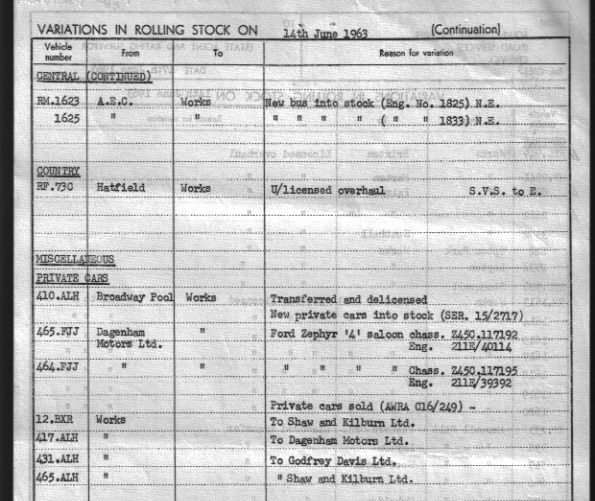 VARIATIONS IN ROLLING STOCK ON 14th June 1963 (Continuation)
Vehicle number From To Reason for variation
CENTRAL (CONTINUED)
RM.1623 A.E.C. Works New bus into stock (Eng. No. 1825) N.E.
1625 " " " " " " ( " " 1833) N.E.
COUNTRY
RF.73C Hatfield Works U/licensed overhaul S.V.S. to E.
MISCELLANEOUS
PRIVATE CARS
410.ALH Broadway Pool Works Transferred and delicensed
New private cars into stock (SER. 15/2717)
465.FJJ Dagenham " Ford Zephyr '4' saloon chass. Z45C,117192
Motors Ltd. Eng. 211E/40114
464.FJJ " " " " " " Chass. Z45C,117195
Eng. 211E/39392
Private cars sold (AWRA C16/249) -
12.BXR Works To Shaw and Kilburn Ltd.
417.ALH " To Dagenham Motors Ltd.
431.ALH " To Godfrey Davis Ltd.
465.ALH " " Shaw and Kilburn Ltd.